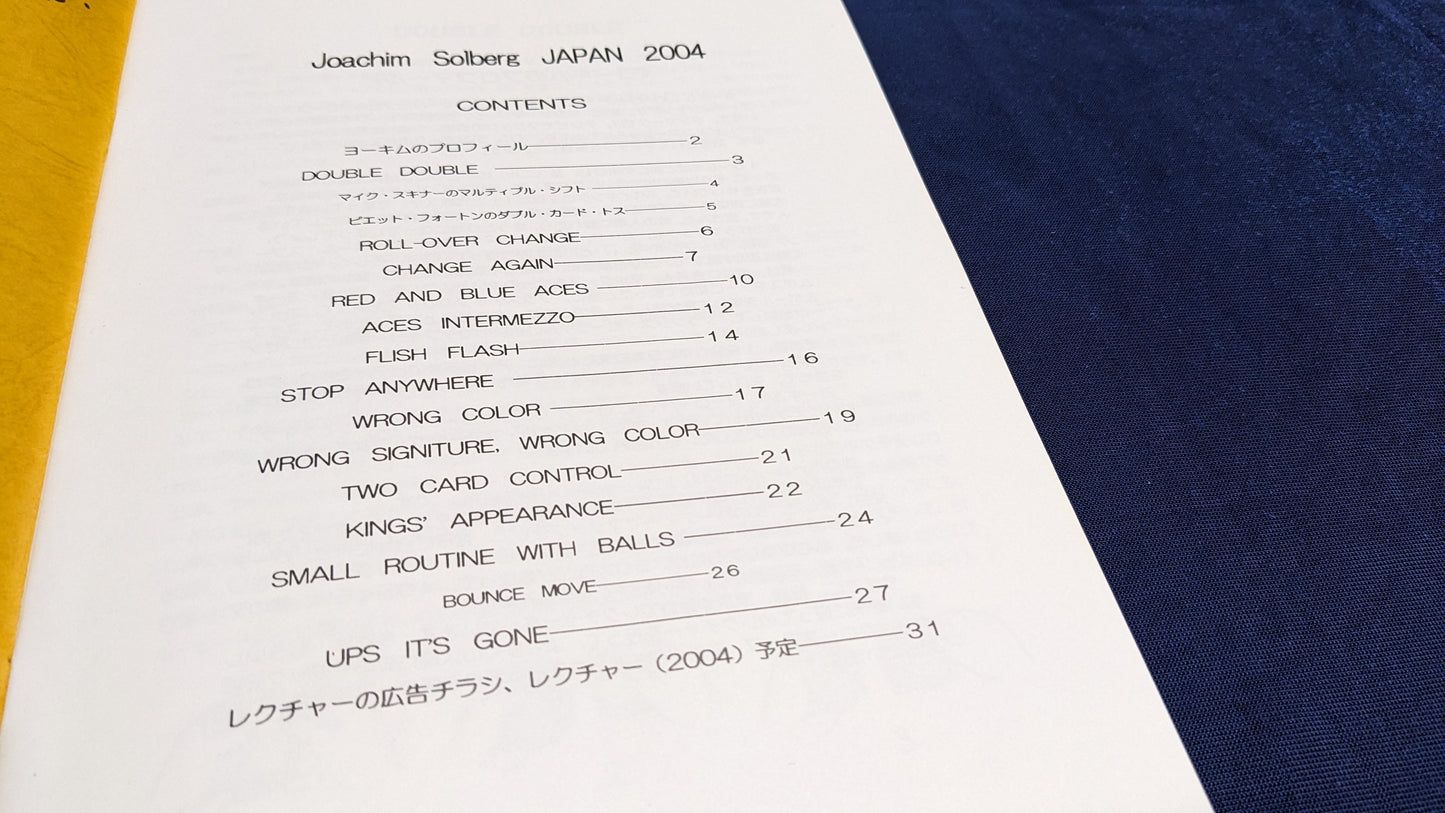 Joachim Solberg JAPAN 2004
CONTENTS
ヨーキムのプロフィール――――――2
DOUBLE DOUBLE ――――――3
マイク・スキナーのマルティプル・シフト ――――――4
ピエット・フォートンのダブル・カード・トス――――――5
ROLL-OVER CHANGE――――――6
CHANGE AGAIN――――――7
RED AND BLUE ACES ――――――10
ACES INTERMEZZO――――――12
FLISH FLASH――――――14
STOP ANYWHERE ――――――16
WRONG COLOR ――――――17
WRONG SIGNITURE, WRONG COLOR――――――19
TWO CARD CONTROL――――――21
KINGS' APPEARANCE――――――22
SMALL ROUTINE WITH BALLS ――――――24
BOUNCE MOVE――――――26
UPS IT'S GONE――――――27
レクチャーの広告チラシ、レクチャー(2004)予定――――――31